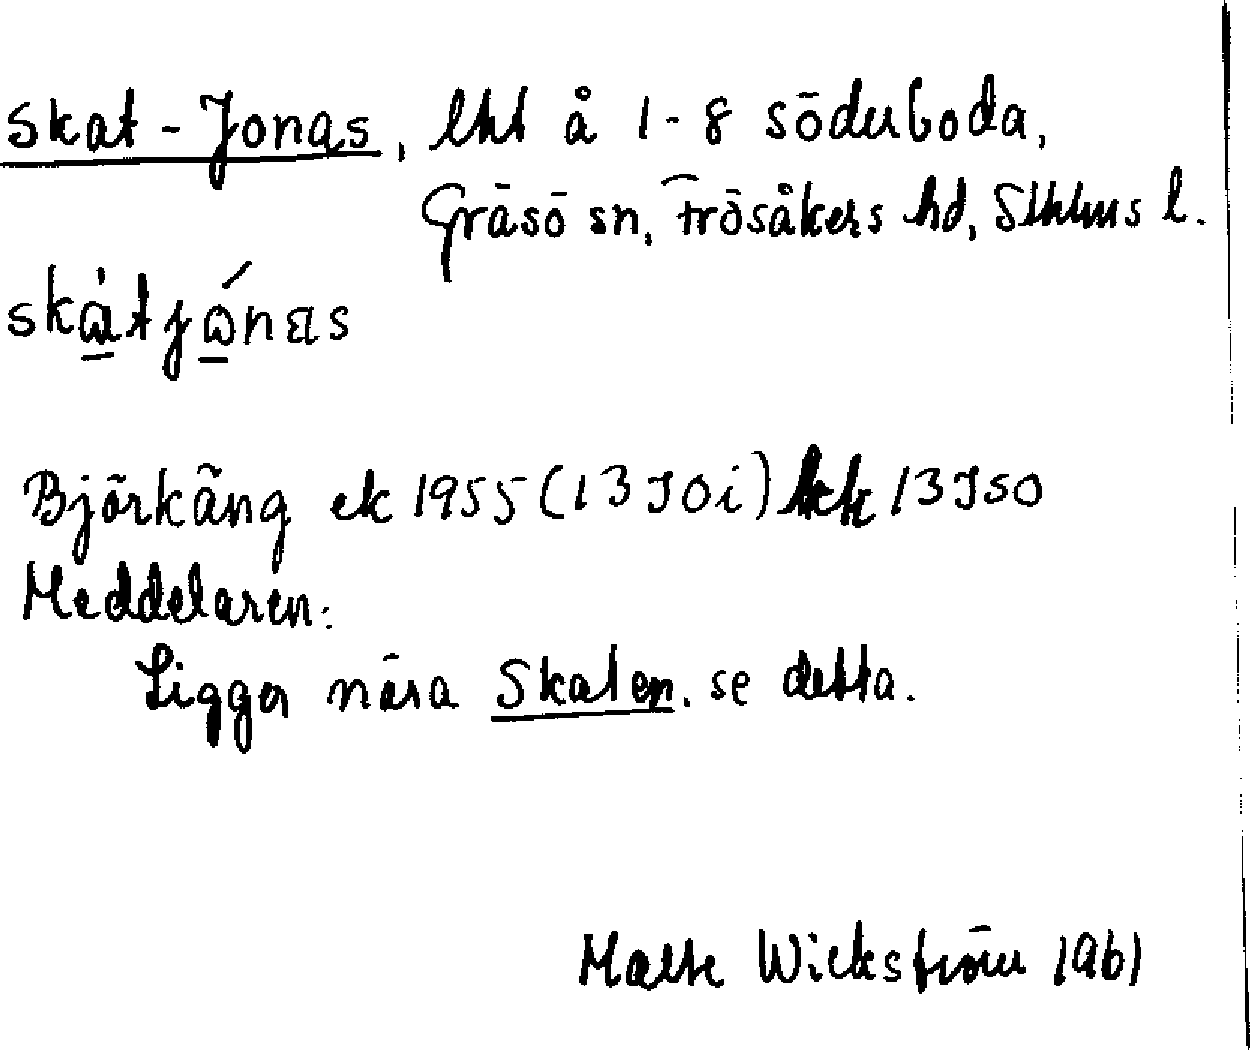 Skat-Jonas, lht å 1-8 Söderboda,
Gräsö sn, Frösåkers hd, Sthlms l.
skåtjónas
Björkäng ek 1955 (13 J 0i) 13 J S0
Meddelaren:
Ligger nära Skaten. se detta.
Malte Wickström 1961